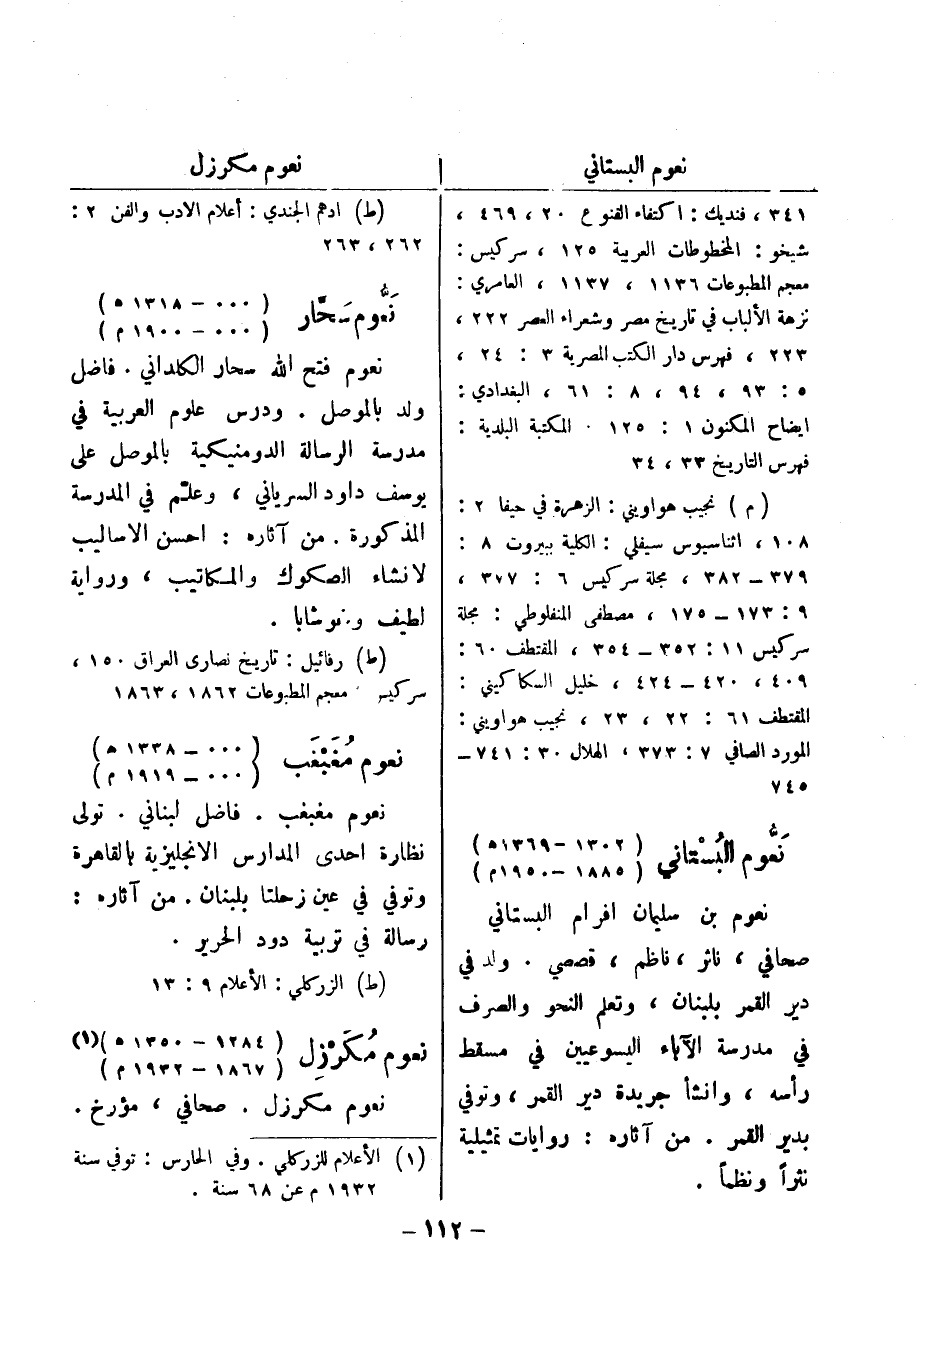 نعوم البستاني
٣٤١ ، فنديك : اكتفاء القنوع ٢٠ ، ٤٦٩ ،
شيخو : المخطوطات العربية ١٢٥ ، سركيس :
معجم المطبوعات ١١٣٦ ، ١١٣٧ ، العامري :
نزهة الألباب في تاريخ مصر وشعراء العصر ٢٢٢ ،
٢٢٣ ، فهرس دار الكتب المصرية ٣ : ٢٤ ،
٥ : ٩٣ ، ٩٤ ، ٨ : ٦١ ، البغدادي :
ايضاح المكنون ١ : ١٢٥ . المكتبة البلدية :
فهرس التاريخ ٣٣ ، ٣٤
( م ) نجيب هواويني : الزهرة في حيفا ٢ :
١٠٨ ، اثناسيوس سيفلي : الكلية ببيروت ٨ :
٣٧٩ – ٣٨٢ ، مجلة سركيس ٦ : ٣٧٧ ،
٩ : ١٧٣ – ١٧٥ ، مصطفى المنفلوطي : مجلة
سركيس ١١ : ٣٥٢ – ٣٥٤ ، المقتطف ٦٠ :
٤٠٩ ، ٤٢٠ – ٤٢٤ ، خليل السكاكيني :
المقتطف ٦١ : ٢٢ ، ٢٣ ، نجيب هواويني :
المورد الصافي ٧ : ٣٧٣ ، الهلال ٣٠ : ٧٤١ –
٧٤٥
نَعُّوم البُسْتاني ( ١٣٠٢ – ١٣٦٩ ه )
( ١٨٨٥ – ١٩٥٠ م )
نعوم بن سليمان افرام البستاني
صحافي ، ناثر ، ناظم ، قصصي . ولد في
دير القمر بلبنان ، وتعلم النحو والصرف
في مدرسة الآباء اليسوعيين في مسقط
رأسه ، وانشأ جريدة دير القمر ، وتوفي
بدير القمر . من آثاره : روايات تمثيلية
نثراً ونظماً .
نعوم مكرزل
(ط) ادهم الجندي : أعلام الادب والفن ٢ :
٢٦٢ ، ٢٦٣
نَعُّوم سَحَّار ( ٠٠٠ – ١٣١٨ ه )
( ٠٠٠ – ١٩٠٠ م )
نعوم فتح الله سحار الكلداني . فاضل
ولد بالموصل . ودرس علوم العربية في
مدرسة الرسالة الدومنيكية بالموصل على
يوسف داود السرياني ، وعلّم في المدرسة
المذكورة . من آثاره : احسن الاساليب
لانشاء الصكوك والمكاتيب ، ورواية
لطيف وخوشابا .
(ط) رفائيل : تاريخ نصارى العراق ١٥٠ ،
سركيس معجم المطبوعات ١٨٦٢ ، ١٨٦٣
نعوم مُغَبْغَب ( ٠٠٠ – ١٣٣٨ ه )
( ٠٠٠ – ١٩١٩ م )
نعوم مغبغب . فاضل لبناني . تولى
نظارة احدى المدارس الانجليزية بالقاهرة
وتوفي في عين زحلتا بلبنان . من آثاره :
رسالة في تربية دود الحرير .
(ط) الزركلي : الأعلام ٩ : ١٣
نعوم مُكَرْزِل ( ١٢٨٤ – ١٣٥٠ ه )(١)
( ١٨٦٧ – ١٩٣٢ م )
نعوم مكرزل . صحافي ، مؤرخ .
(١) الأعلام للزركلي . وفي الحارس : توفي سنة
١٩٣٢ م عن ٦٨ سنة .
– ١١٢ –